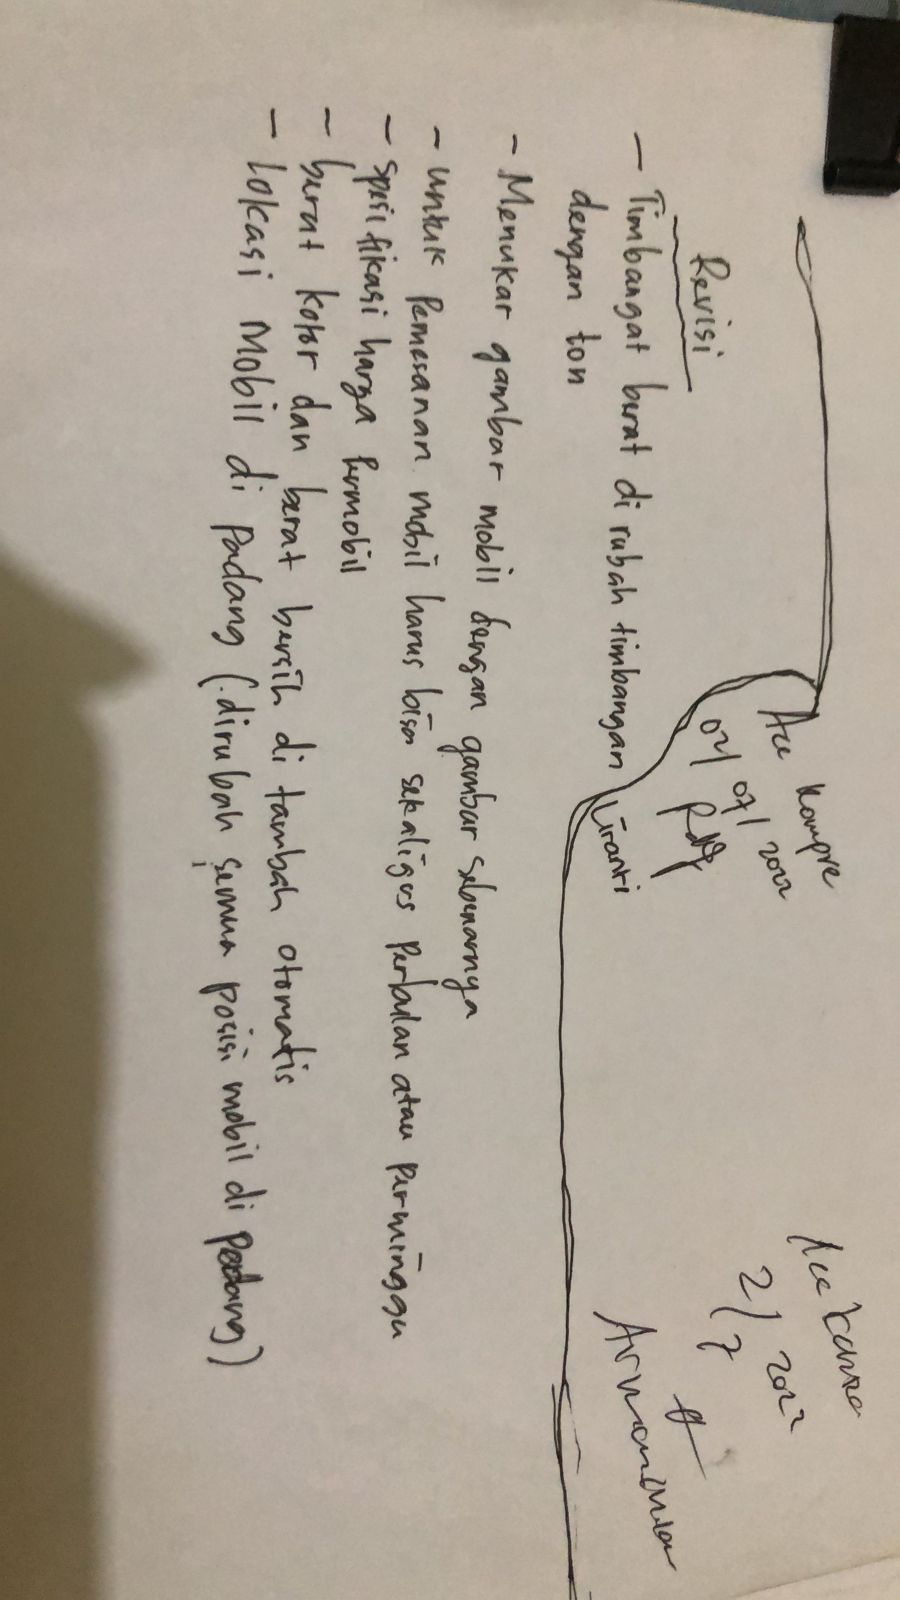 Acc Kompre
02/07/2022
Liranti
Acc
2/7 2022
Revisi
- Timbangat berat di rubah timbangan
dengan ton
- Menukar gambar mobil dengan gambar sebenarnya
- untuk Pemesanan mobil harus bisa sekaligus Perbulan atau perminggu
- Spesifikasi harga Permobil
- berat kotor dan berat bersih di tambah otomatis
- Lokasi Mobil di Padang (dirubah semua posisi mobil di Padang)